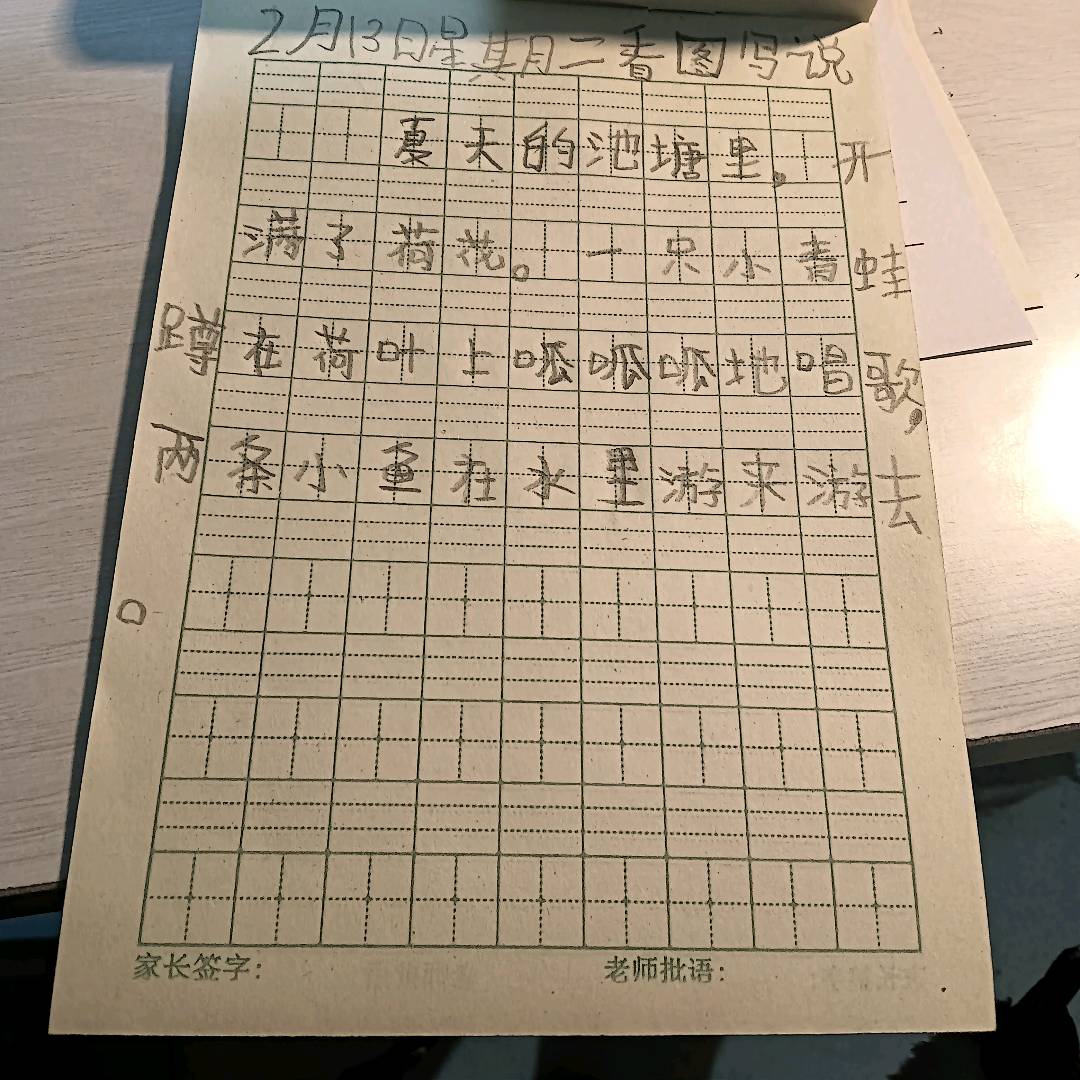 2月13日星期二看图写说
夏天的池塘里，开
满了荷花。一只小青蛙
蹲在荷叶上呱呱呱地唱歌，
两条小鱼在水里游来游去
。
家长签字：
老师批语：